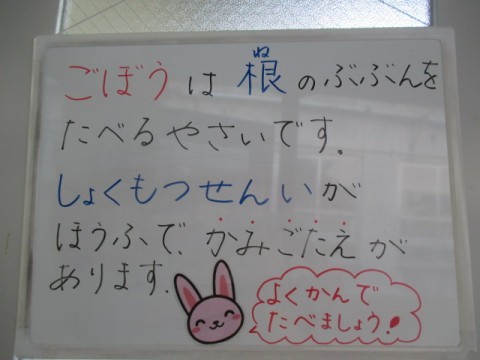 ごぼうは根のぶぶんを
ね
たべるやさいです。
しょくもつせんいが
ほうふで、かみごたえが
あります。
よくかんで
たべましょう!